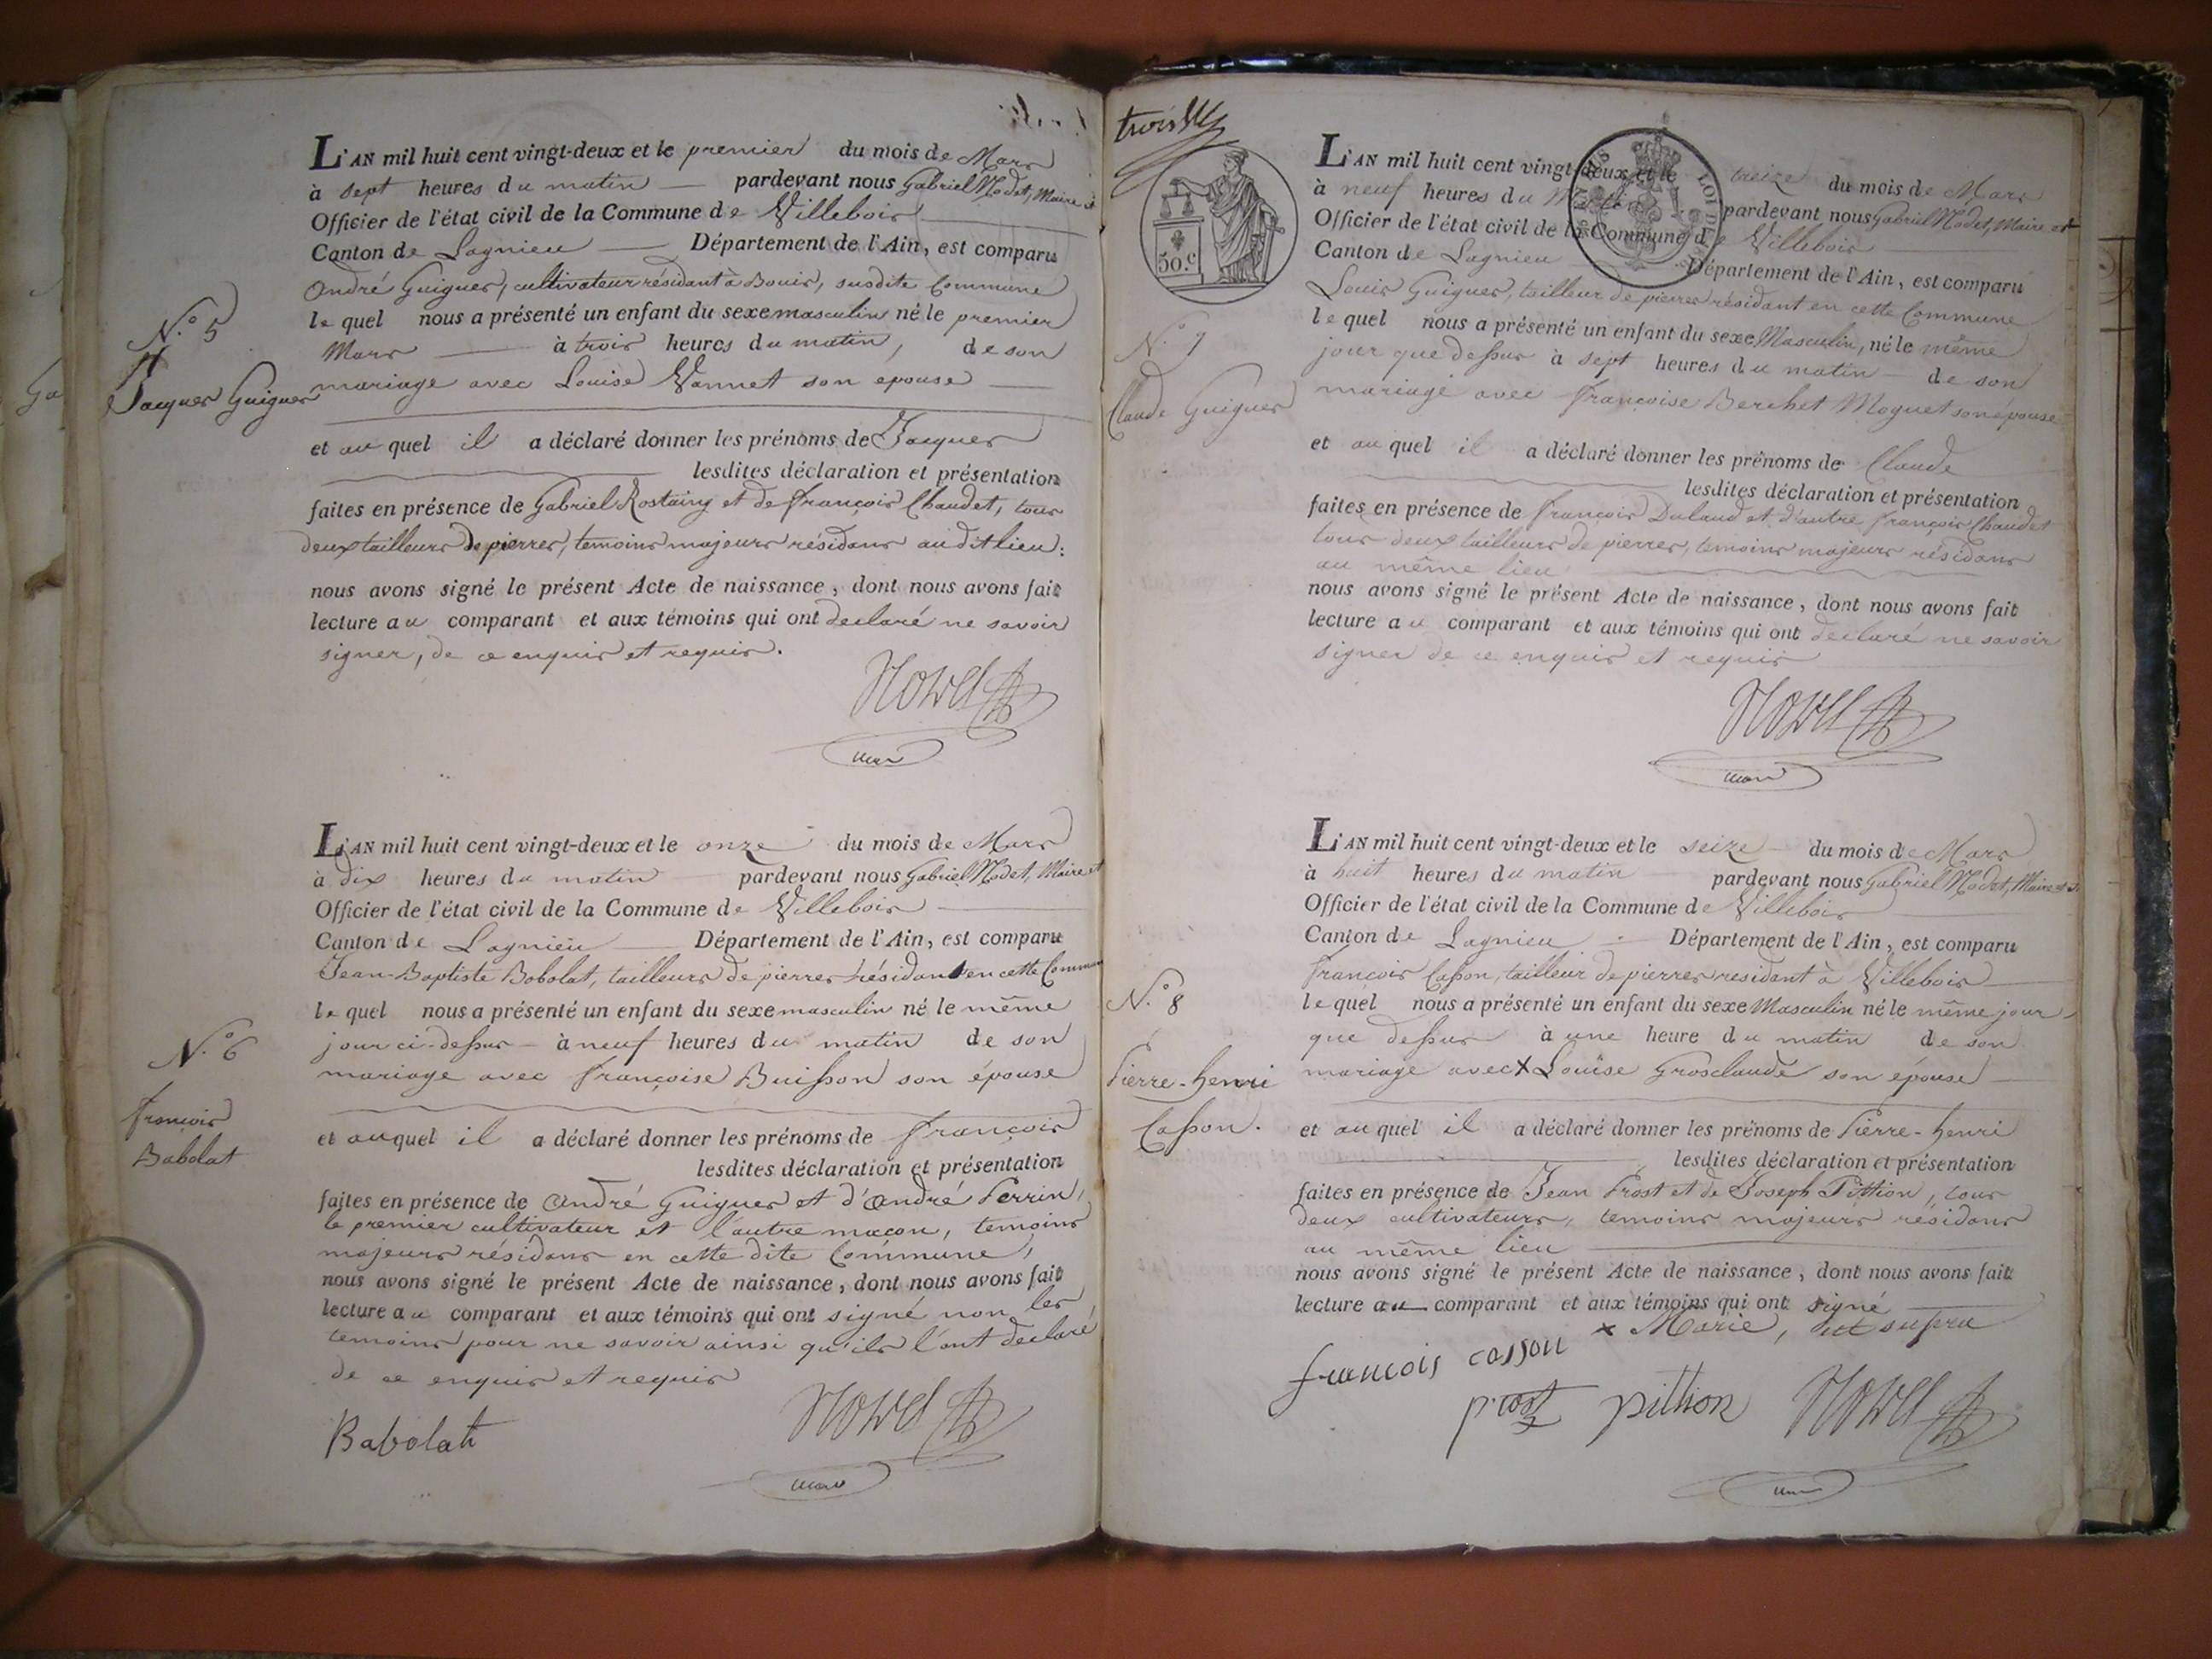 L'AN mil huit cent vingt-deux et le premier du mois de Mars
à sept heures du matin — pardevant nous Gabriel Nodet, Maire et
Officier de l'état civil de la Commune de Villebois
Canton de Lagnieu — Département de l'Ain, est comparu
André Guigues, cultivateur résidant à Bouis, susdite Commune
lequel nous a présenté un enfant du sexe masculin né le premier
Mars — à trois heures du matin, de son
mariage avec Louise Vannet son epouse —
et auquel il a déclaré donner les prénoms de Jacques
lesdites déclaration et présentation
faites en présence de Gabriel Rostaing et de françois Chaudet, tous
deux tailleurs de pierres, temoins majeurs résidans audit lieu:
nous avons signé le présent Acte de naissance, dont nous avons fait
lecture au comparant et aux témoins qui ont declaré ne savoir
signer, de ce enquis et requis.
N.º 5
Jacques Guigues
L'AN mil huit cent vingt-deux et le onze du mois de Mars
à dix heures du matin pardevant nous Gabriel Nodet, Maire et
Officier de l'état civil de la Commune de Villebois
Canton de Lagnieu — Département de l'Ain, est comparu
Jean-Baptiste Bobolat, tailleurs de pierres résidant en cette Commun
lequel nous a présenté un enfant du sexe masculin né le même
jour ci-dessus — à neuf heures du matin de son
mariage avec françoise Buisson son épouse
et auquel il a déclaré donner les prénoms de françois
lesdites déclaration et présentation
faites en présence de André Guigues et d'André Perrin,
le premier cultivateur et l'autre maçon, temoins
majeurs résidans en cette dite Commune,
nous avons signé le présent Acte de naissance, dont nous avons fait
lecture au comparant et aux témoins qui ont signé non les
temoins pour ne savoir ainsi qu'ils l'ont declaré
de ce enquis et requis
Babolat
N.º 6
françois
Babolat
trois
50.c
L'AN mil huit cent vingt-deux et le treize du mois de Mars
à neuf heures du Matin pardevant nous Gabriel Nodet, Maire et
Officier de l'état civil de la Commune de Villebois
Canton de Lagnieu Département de l'Ain, est comparu
Louis Guigues, tailleur de pierres résidant en cette Commune
lequel nous a présenté un enfant du sexe Masculin, né le même
jour que dessus à sept heures du matin — de son
mariage avec françoise Berchet Moguet son épouse
et auquel il a déclaré donner les prénoms de Claude
lesdites déclaration et présentation
faites en présence de françois Dulaud et d'autre françois Chaudet
tous deux tailleurs de pierres, temoins majeurs résidans
au même lieu
nous avons signé le présent Acte de naissance, dont nous avons fait
lecture au comparant et aux témoins qui ont declaré ne savoir
signer de ce enquis et requis
N.º 7
Claude Guigues
L'AN mil huit cent vingt-deux et le seize du mois de Mars
à huit heures du matin pardevant nous Gabriel Nodet, Maire et
Officier de l'état civil de la Commune de Villebois
Canton de Lagnieu Département de l'Ain, est comparu
françois Casson, tailleur de pierres residant à Villebois
lequel nous a présenté un enfant du sexe Masculin né le même jour
que dessus à une heure du matin de son
mariage avec x Louise Grosclaude son épouse
et auquel il a déclaré donner les prénoms de Pierre-henri
lesdites déclaration et présentation
faites en présence de Jean Prost et de Joseph Pittion, tous
deux cultivateurs, temoins majeurs résidans
au même lieu
nous avons signé le présent Acte de naissance, dont nous avons fait
lecture au comparant et aux témoins qui ont signé
x Marie, ut supra
francois casson
prost pittion
N.º 8
Pierre-henri
Casson.